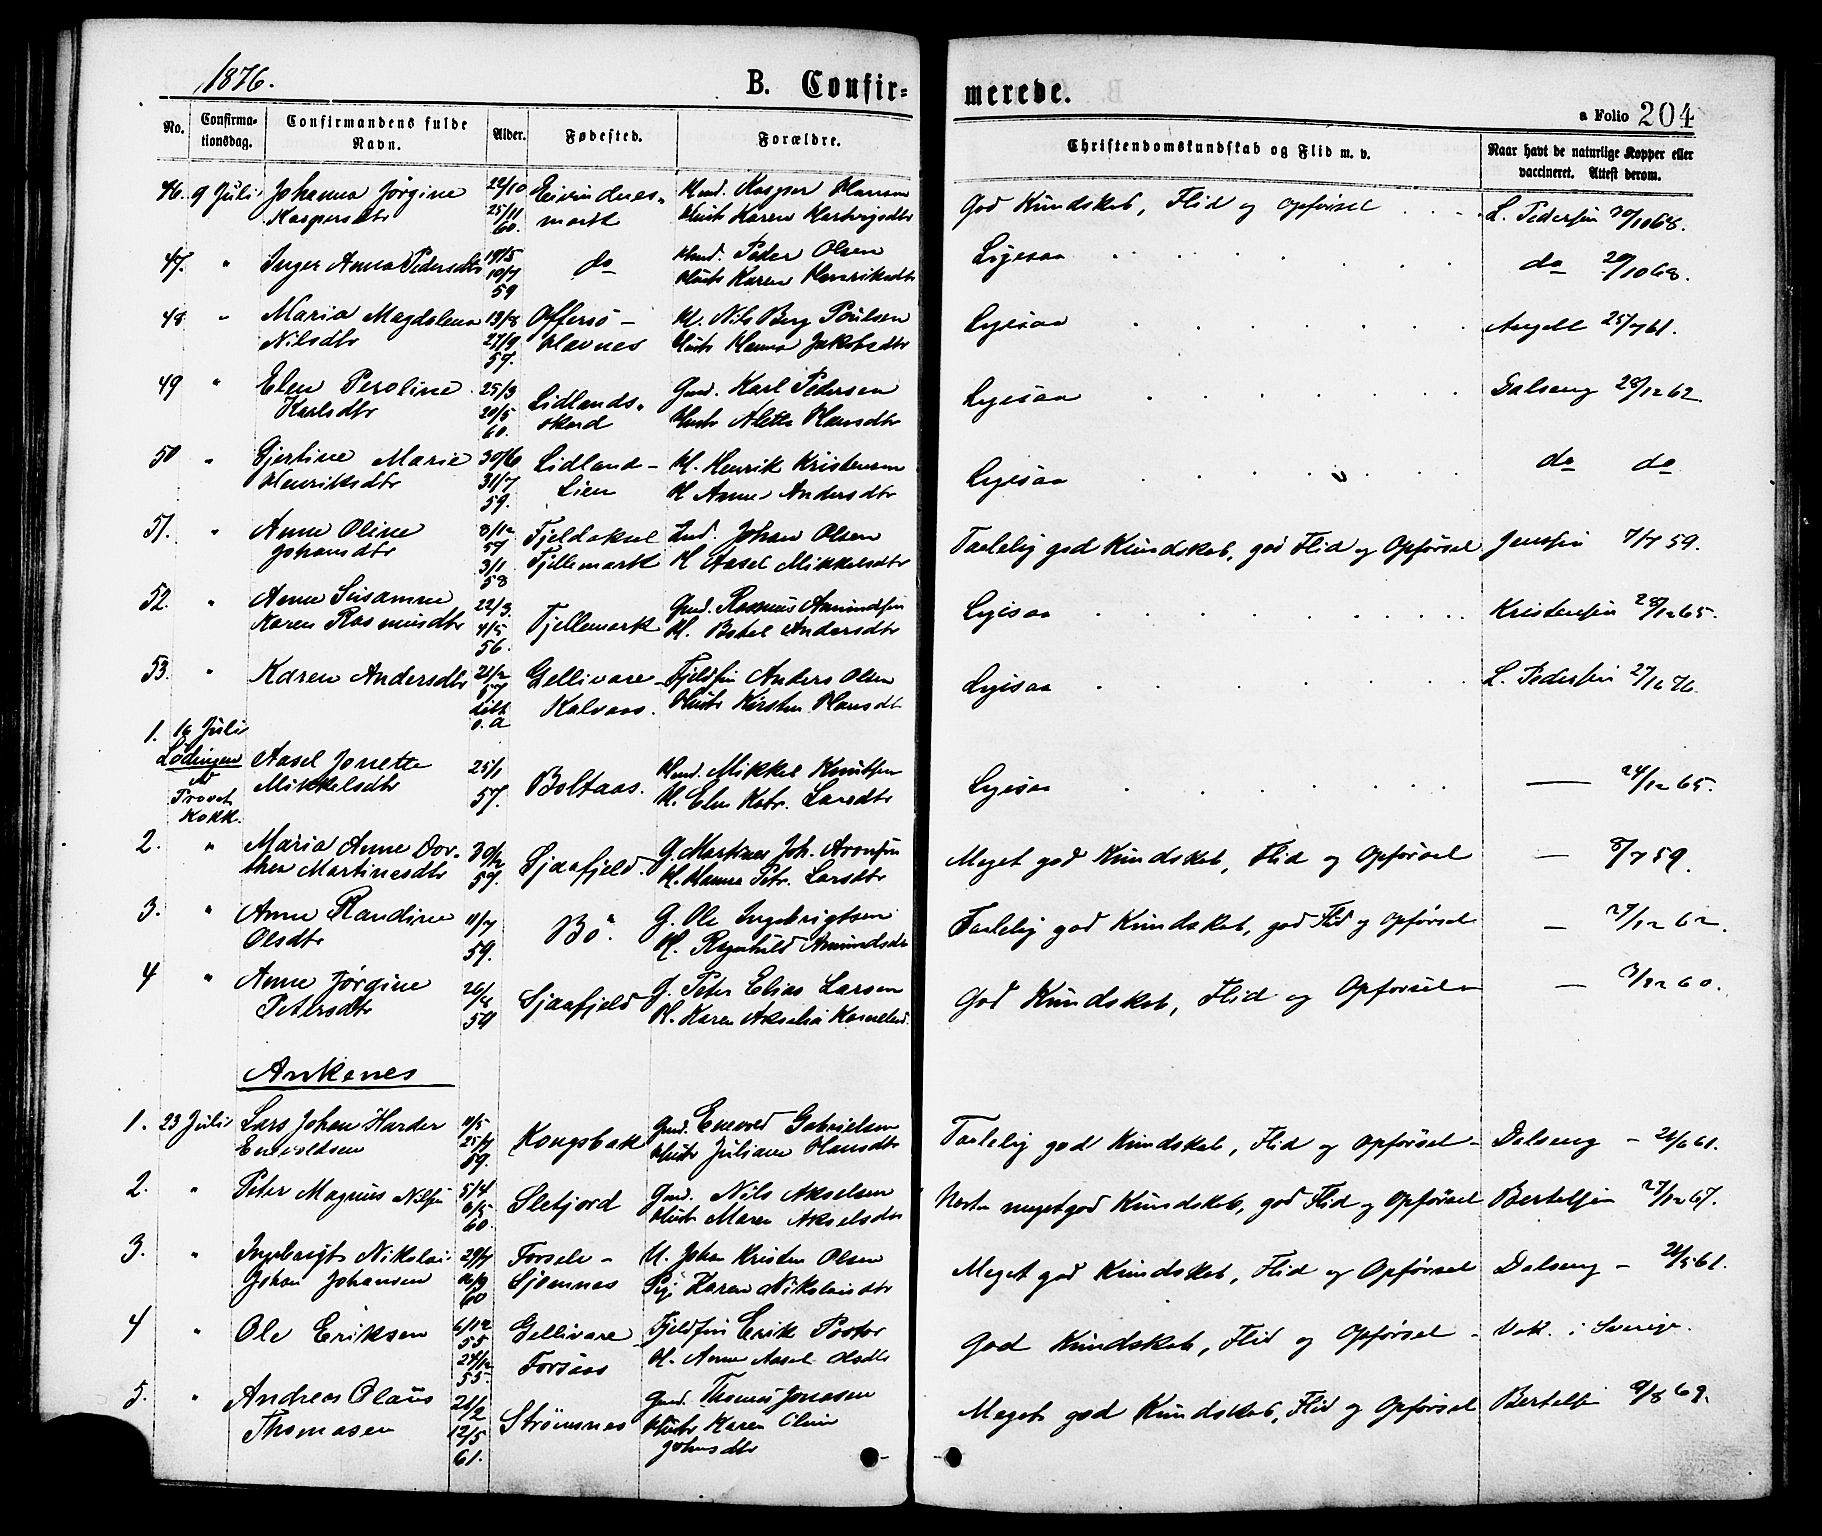 1876.
B. Confir=
merede.
a Folio 204
No.
Confirma-
tionsdag.
Confirmandens fulde
Navn.
Alder.
Fødested.
Forældre.
Christendomskundskab og Flid m. v.
Naar havt de naturlige Kopper eller
vaccineret. Attest derom.
46. 9 Juli Johanna Jørgine 22/10 Eivindnes- Hmd. Kasper Hansen God Kundskab, Flid og Opførsel L. Pedersen 20/10 68.
Kaspersdtr 25/11 60. mark Hustr Karen Hartvigsdtr
47. " Inger Anna Pedersdtr 19/5 10/7 59 do Hmd. Peder Olsen Ligesaa do 20/10 68.
Hustr Karen Henriksdtr
48 " Maria Magdalena 13/8 Offersö - H. Nils Berg Poulsen Ligesaa Angell 25/7 61.
Nilsdtr 27/9 57. Havnes Hustr Hanna Jakobsdtr
49 " Elen Peroline 25/3 Lidlands- Gmd. Karl Pedersen Ligesaa Dalseng 28/12 62
Karlsdtr 20/5 60. skard Hustr Aletta Hansdtr
50 " Gjertine Marie 30/6 Lidland- H. Henrik Kristensen Ligesaa do do
Henriksdtr 31/7 59. Lien H Anne Andersdtr
51. " Anne Oline 3/12 57 Fjeldakul Ind. Johan Olsen Taalelig god Kundskab, god Flid og Opførsel Jensen 7/7 59.
Johansdtr 3/1 58 Fjellemark H Aasel Mikkelsdtr
52. " Anne Susanne 22/3 Fjellemark Gmd. Rasmus Amundsen Ligesaa Kristensen 28/12 65.
Karen Rasmusdtr 4/5 56. H. Botel Andersdtr
53. " Karen Andersdtr 21/2 57 Gellivare - Fjeldfin Anders Olsen Ligesaa L. Pedersen
døbt s. A Kalvaas. Hustr Kirsten Hansdt
1. 16 Juli
Lødingen Aasel Jonette 25/1 Boltaas. Hmd. Mikkel Knutsen Ligesaa — 24/12 65.
Provst Mikkelsdtr 57. H. Elen Katr. Larsdtr
Kokk.
2. " Maria Anne Dor- 30/12 Sjaafjeld. G. Martines Joh. Aronsen Meget god Kundskab, Flid og Opførsel — 8/7 59.
thea Martinesdtr 57. H. Hanna Petr. Larsdtr
3. " Anne Randine 11/7 Bö. G. Ole Ingebrigtsen Taalelig god Kundskab, god Flid og Opførsel — 27/12 62.
Olsdtr 59. H. Ragnhild Amundsdtr
4 " Anne Jørgine 26/8 Sjaafjeld G. Peter Elias Larsen God Kundskab, Flid og Opførsel — 3/12 60.
Petersdtr 59 H. Karen Akselia Kornelsd.
Ankenes
1. 23 Juli Lars Johan Harder 11/5 Kongsbak Gmd. Enevold Gabrielsen Taalelig god Kundskab, Flid og Opførsel - Dalseng - 26/6 61.
Enevoldsen 59. Hustr Juliane Hansdtr
2. " Peter Magnus Nilsen 5/4 6/5 60. Sletjord Gmd. Nils Akselsen Næsten meget god Kundskab, god Flid og Opførsel Bertelsen 27/12 67.
Hustr Maren Akselsdtr
3. " Ingebrigt Nikolai 29/7 Forsele - U. Johan Kristen Olsen Meget god Kundskab, Flid og Opførsel Dalseng - 26/5 61.
Johan Johansen 16/9 60 Sjømnes Pij. Karen Nikolaisdtr
4 " Ole Eriksen 6/12 55 Gellivare Fjeldfin Erik Postor God Kundskab, Flid og Opførsel - Vak. i Sverige.
24/12 55. Forsaas H. Anne Aasel Olsdtr
5. " Andreas Olaus 26/2 Strömsnes Gmd. Thomas Jonasen Meget god Kundskab, Flid og Opførsel Bertelsen 9/8 69.
Thomasen 12/5 61. Hustr Karen Oline
Johnsdtr